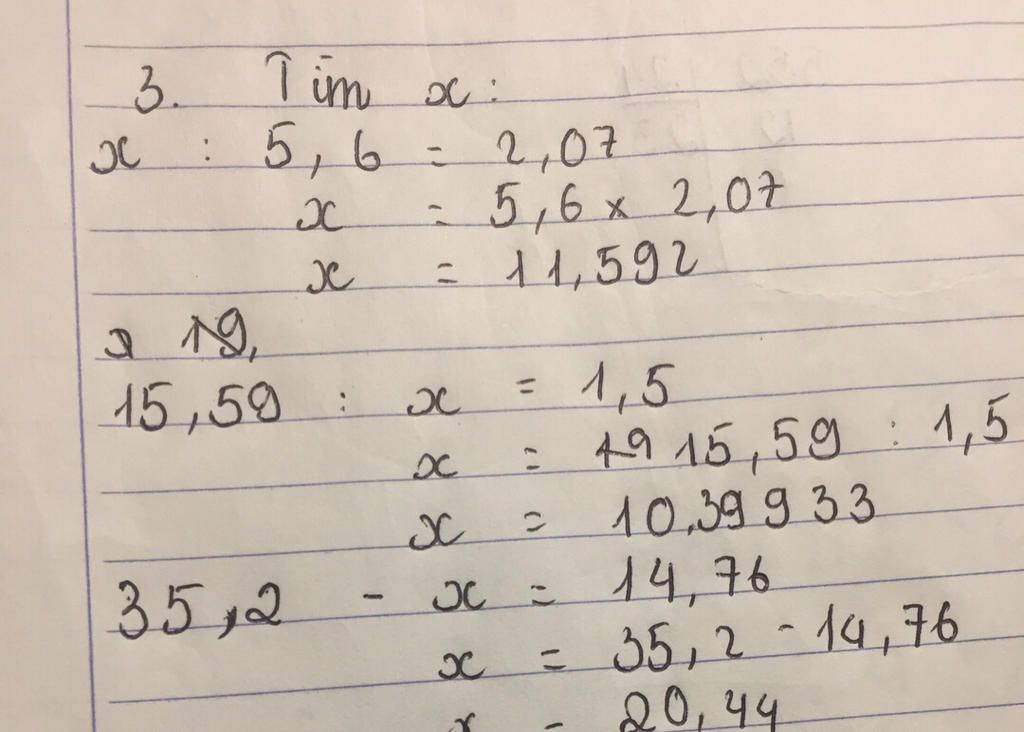 3. Tìm x:
x : 5,6 = 2,07
x = 5,6 x 2,07
x = 11,592
19,
15,59 : x = 1,5
x = 15,59 : 1,5
x = 10,39933
35,2 - x = 14,76
x = 35,2 - 14,76
x = 20,44